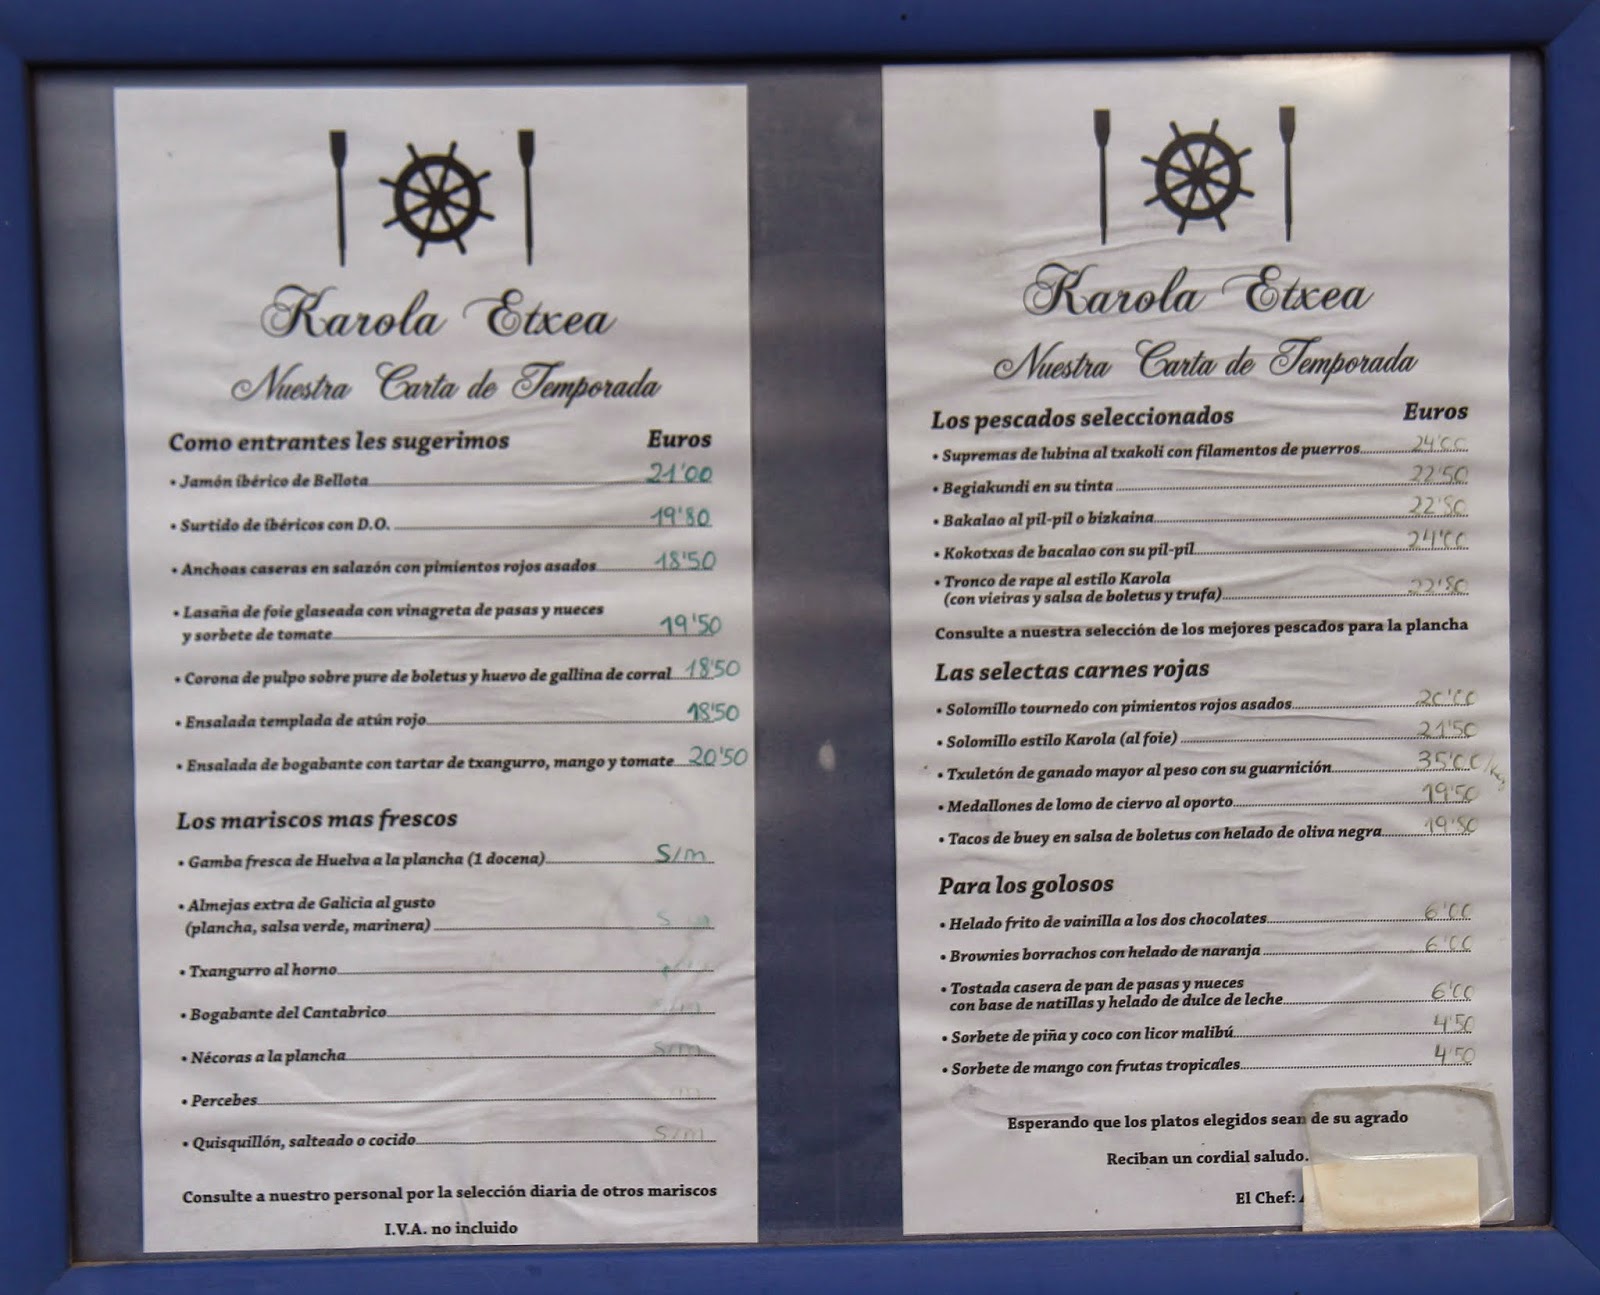 Karola Etxea
Nuestra Carta de Temporada
Como entrantes les sugerimos Euros
• Jamón ibérico de Bellota 21'00
• Surtido de ibéricos con D.O. 19'80
• Anchoas caseras en salazón con pimientos rojos asados 18'50
• Lasaña de foie glaseada con vinagreta de pasas y nueces
y sorbete de tomate 19'50
• Corona de pulpo sobre pure de boletus y huevo de gallina de corral 18'50
• Ensalada templada de atún rojo 18'50
• Ensalada de bogabante con tartar de txangurro, mango y tomate 20'50
Los mariscos mas frescos
• Gamba fresca de Huelva a la plancha (1 docena) S/m
• Almejas extra de Galicia al gusto
(plancha, salsa verde, marinera)
• Txangurro al horno
• Bogabante del Cantabrico S/m
• Nécoras a la plancha S/m
• Percebes
• Quisquillón, salteado o cocido S/m
Consulte a nuestro personal por la selección diaria de otros mariscos
I.V.A. no incluido
Karola Etxea
Nuestra Carta de Temporada
Los pescados seleccionados Euros
• Supremas de lubina al txakoli con filamentos de puerros 24'00
• Begiakundi en su tinta 22'50
• Bakalao al pil-pil o bizkaina 22'50
• Kokotxas de bacalao con su pil-pil 24'00
• Tronco de rape al estilo Karola
(con vieiras y salsa de boletus y trufa) 22'80
Consulte a nuestra selección de los mejores pescados para la plancha
Las selectas carnes rojas
• Solomillo tournedo con pimientos rojos asados 20'00
• Solomillo estilo Karola (al foie) 21'50
• Txuletón de ganado mayor al peso con su guarnición 35'00/kg
• Medallones de lomo de ciervo al oporto 19'50
• Tacos de buey en salsa de boletus con helado de oliva negra 19'50
Para los golosos
• Helado frito de vainilla a los dos chocolates 6'00
• Brownies borrachos con helado de naranja 6'00
• Tostada casera de pan de pasas y nueces
con base de natillas y helado de dulce de leche 6'00
• Sorbete de piña y coco con licor malibú 4'50
• Sorbete de mango con frutas tropicales 4'50
Esperando que los platos elegidos sean de su agrado
Reciban un cordial saludo.
El Chef: